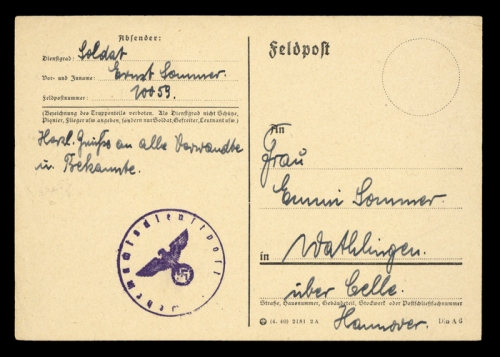 Absender:
Dienstgrad: Soldat
Vor- und Zuname: Ernst Sommer.
Feldpostnummer: 20053.
(Bezeichnung des Truppenteils verboten. Als Dienstgrad nicht Schütze,
Pionier, Flieger usw. angeben, sondern nur Soldat, Gefreiter, Leutnant usw.)
Herzl. Grüße an alle Verwandte
u. Bekannte.
Feldpost
An
Frau
Emmi Sommer.
in Wathlingen.
über Celle.
Straße, Hausnummer, Gebäudeteil, Stockwerk oder Postschließfachnummer
Hannover.
(4. 40) 2181 2A
Din A 6